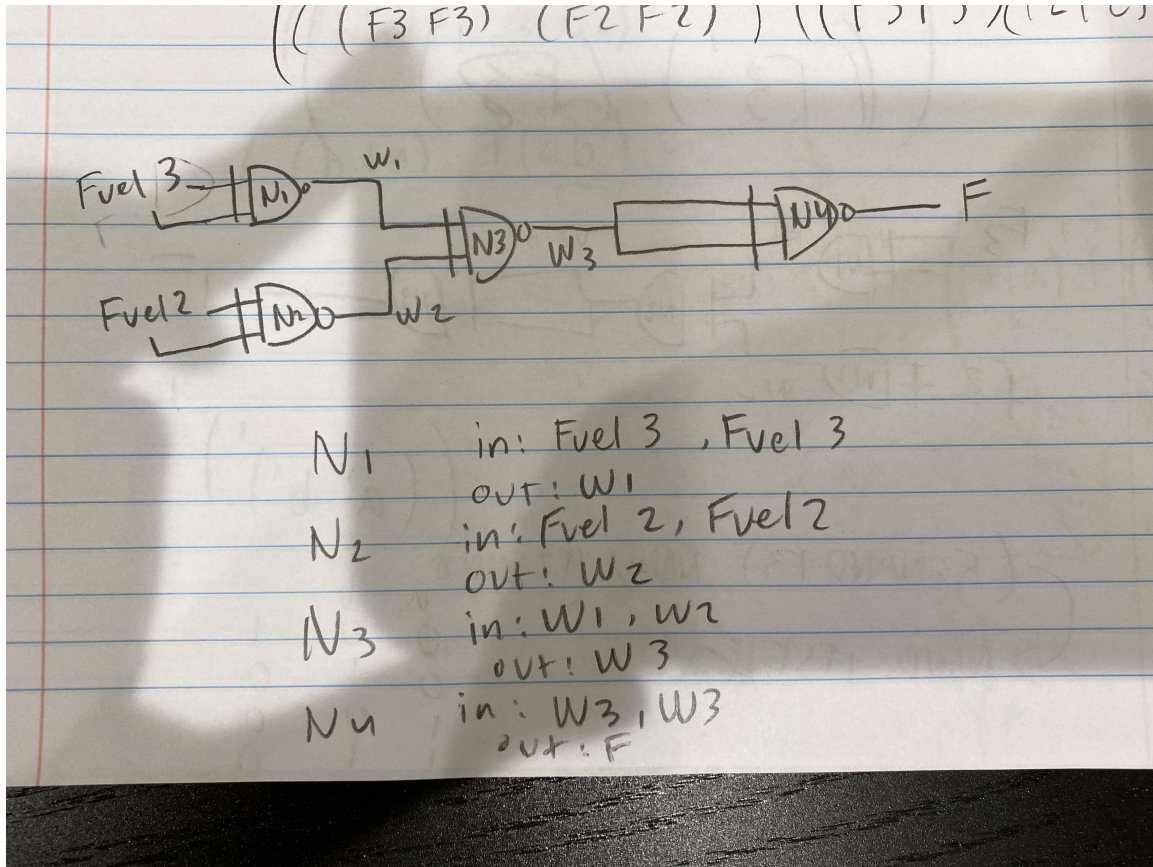 (( ( F3 F3) (F2 F2) ) ((
Fuel 3 N1 W1
N3 W3 N4 F
Fuel 2 N2 W2
N1 in: Fuel 3 , Fuel 3
out: W1
N2 in: Fuel 2, Fuel 2
out: W2
N3 in: W1, W2
out: W3
N4 in: W3, W3
out: F